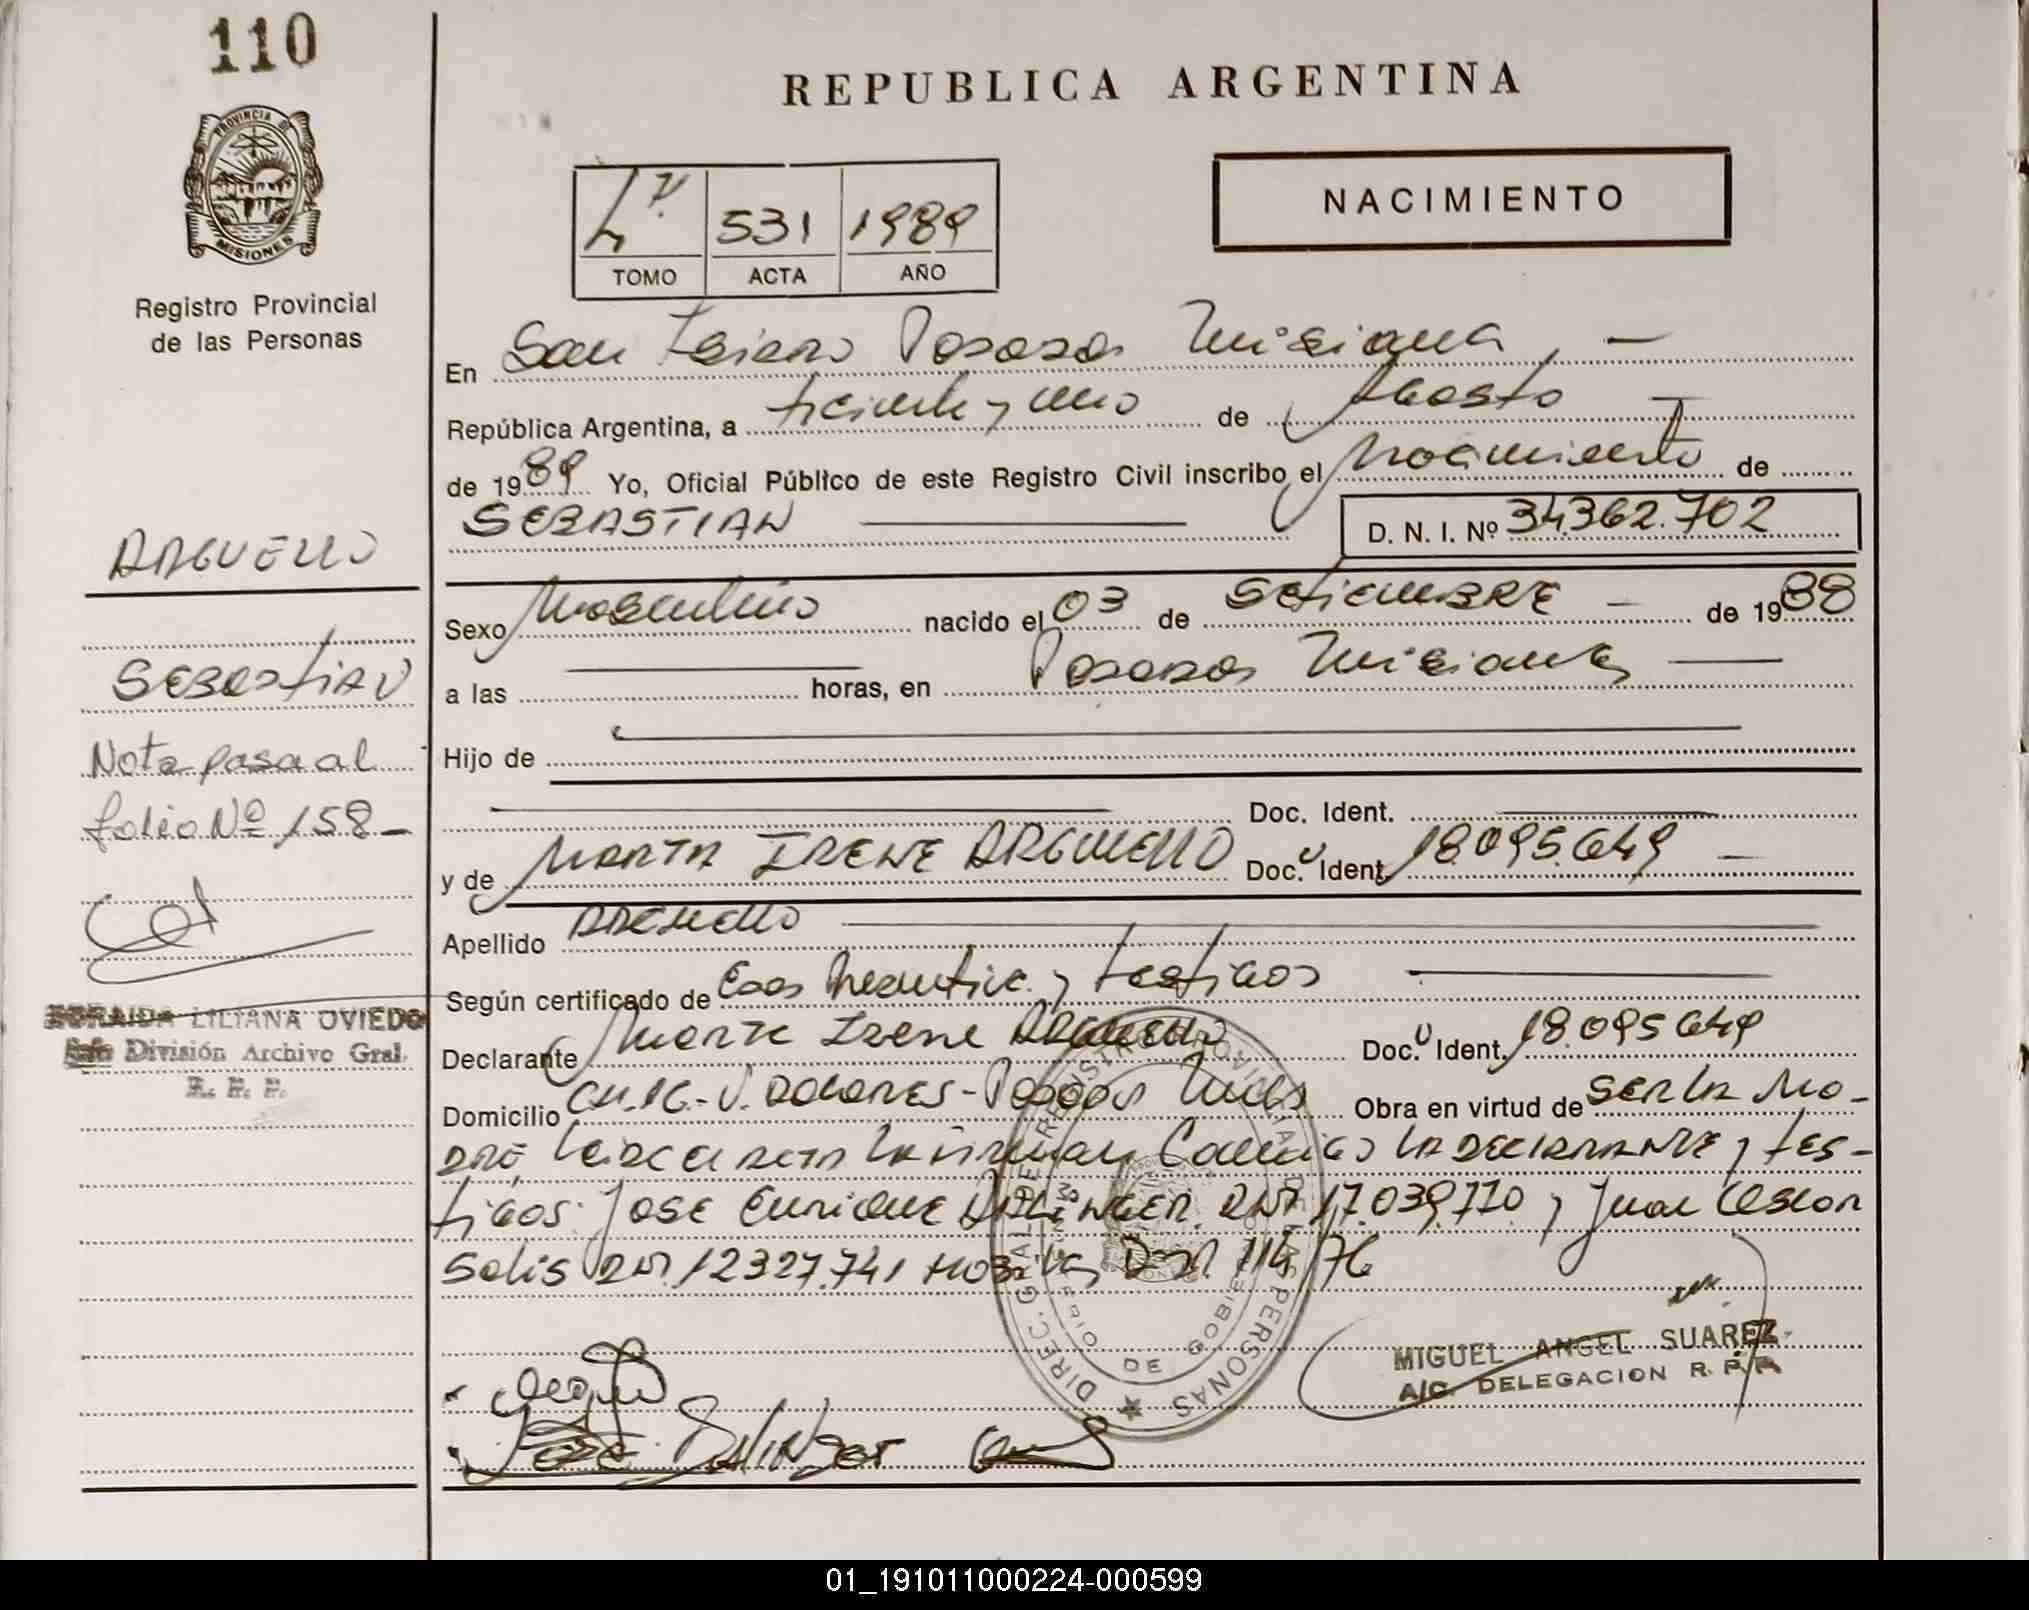 110
REPUBLICA ARGENTINA
PROVINCIA DE
MISIONES
Registro Provincial
de las Personas
531 1989
TOMO ACTA AÑO
NACIMIENTO
En San Isidro Posadas Misiones, —
República Argentina, a treinta y uno de Agosto —
de 1989 Yo, Oficial Público de este Registro Civil inscribo el Nacimiento de
SEBASTIAN D. N. I. Nº 34.362.702
ARGUELLO
Sexo Masculino nacido el 03 de SEtiEMBRE — de 1988
SEBAStiAN
a las horas, en Posadas Misiones
Nota pasa al
folio Nº 158 –
Hijo de
Doc. Ident.
y de MARTA IRENE ARGUELLO Doc. Ident. 18.095.649 —
Apellido ARGUELLO
Según certificado de y testigos
ZORAIDA LILIANA OVIEDO
División Archivo Gral.
R. P. P.
Declarante Marta Irene ARGUELLO Doc. Ident. 18.095.649
Domicilio CH.16.- V. DOLORES - Posadas Mnes Obra en virtud de SER LA MA-
DRE Leida el Acta la firman Conmigo LA DECLARANTE y tes-
tigos: JOSE ENRIQUE DNI 17.039.770 y Juan
Solis DNI 12.327.741 114/76
DIREC. GRAL. DE REGISTRO PROVINCIAL DE LAS PERSONAS
DE GOBIERNO
MIGUEL ANGEL SUAREZ
A/C. DELEGACION R. P. P.
JOSE
01_191011000224-000599